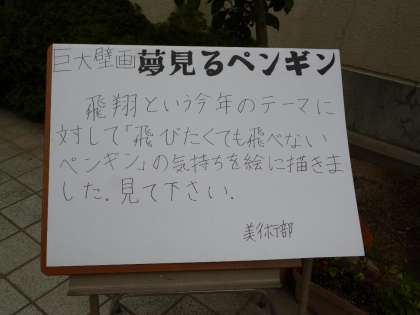 巨大壁画夢見るペンギン
飛翔という今年のテーマに
対して「飛びたくても飛べない
ペンギン」の気持ちを絵に描きま
した.見て下さい.
美術部